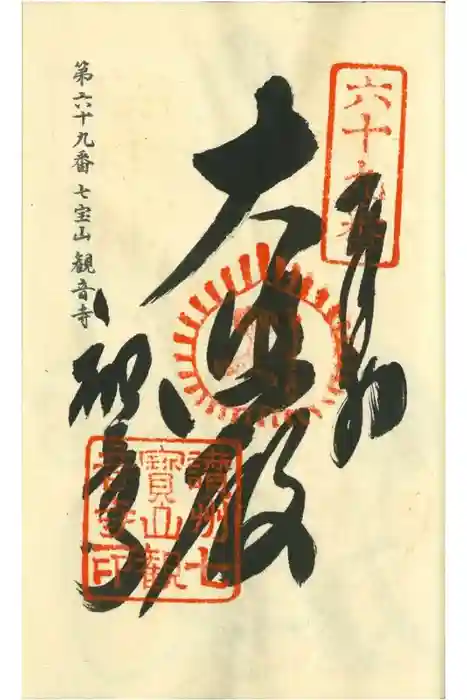 六十九番
奉納
大悲殿
観音寺
讃州七
寶山観
音寺印
第六十九番 七宝山 観音寺